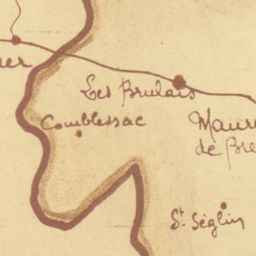 Les Brulais
Comblessac
Maure
de Bre
St Séglin